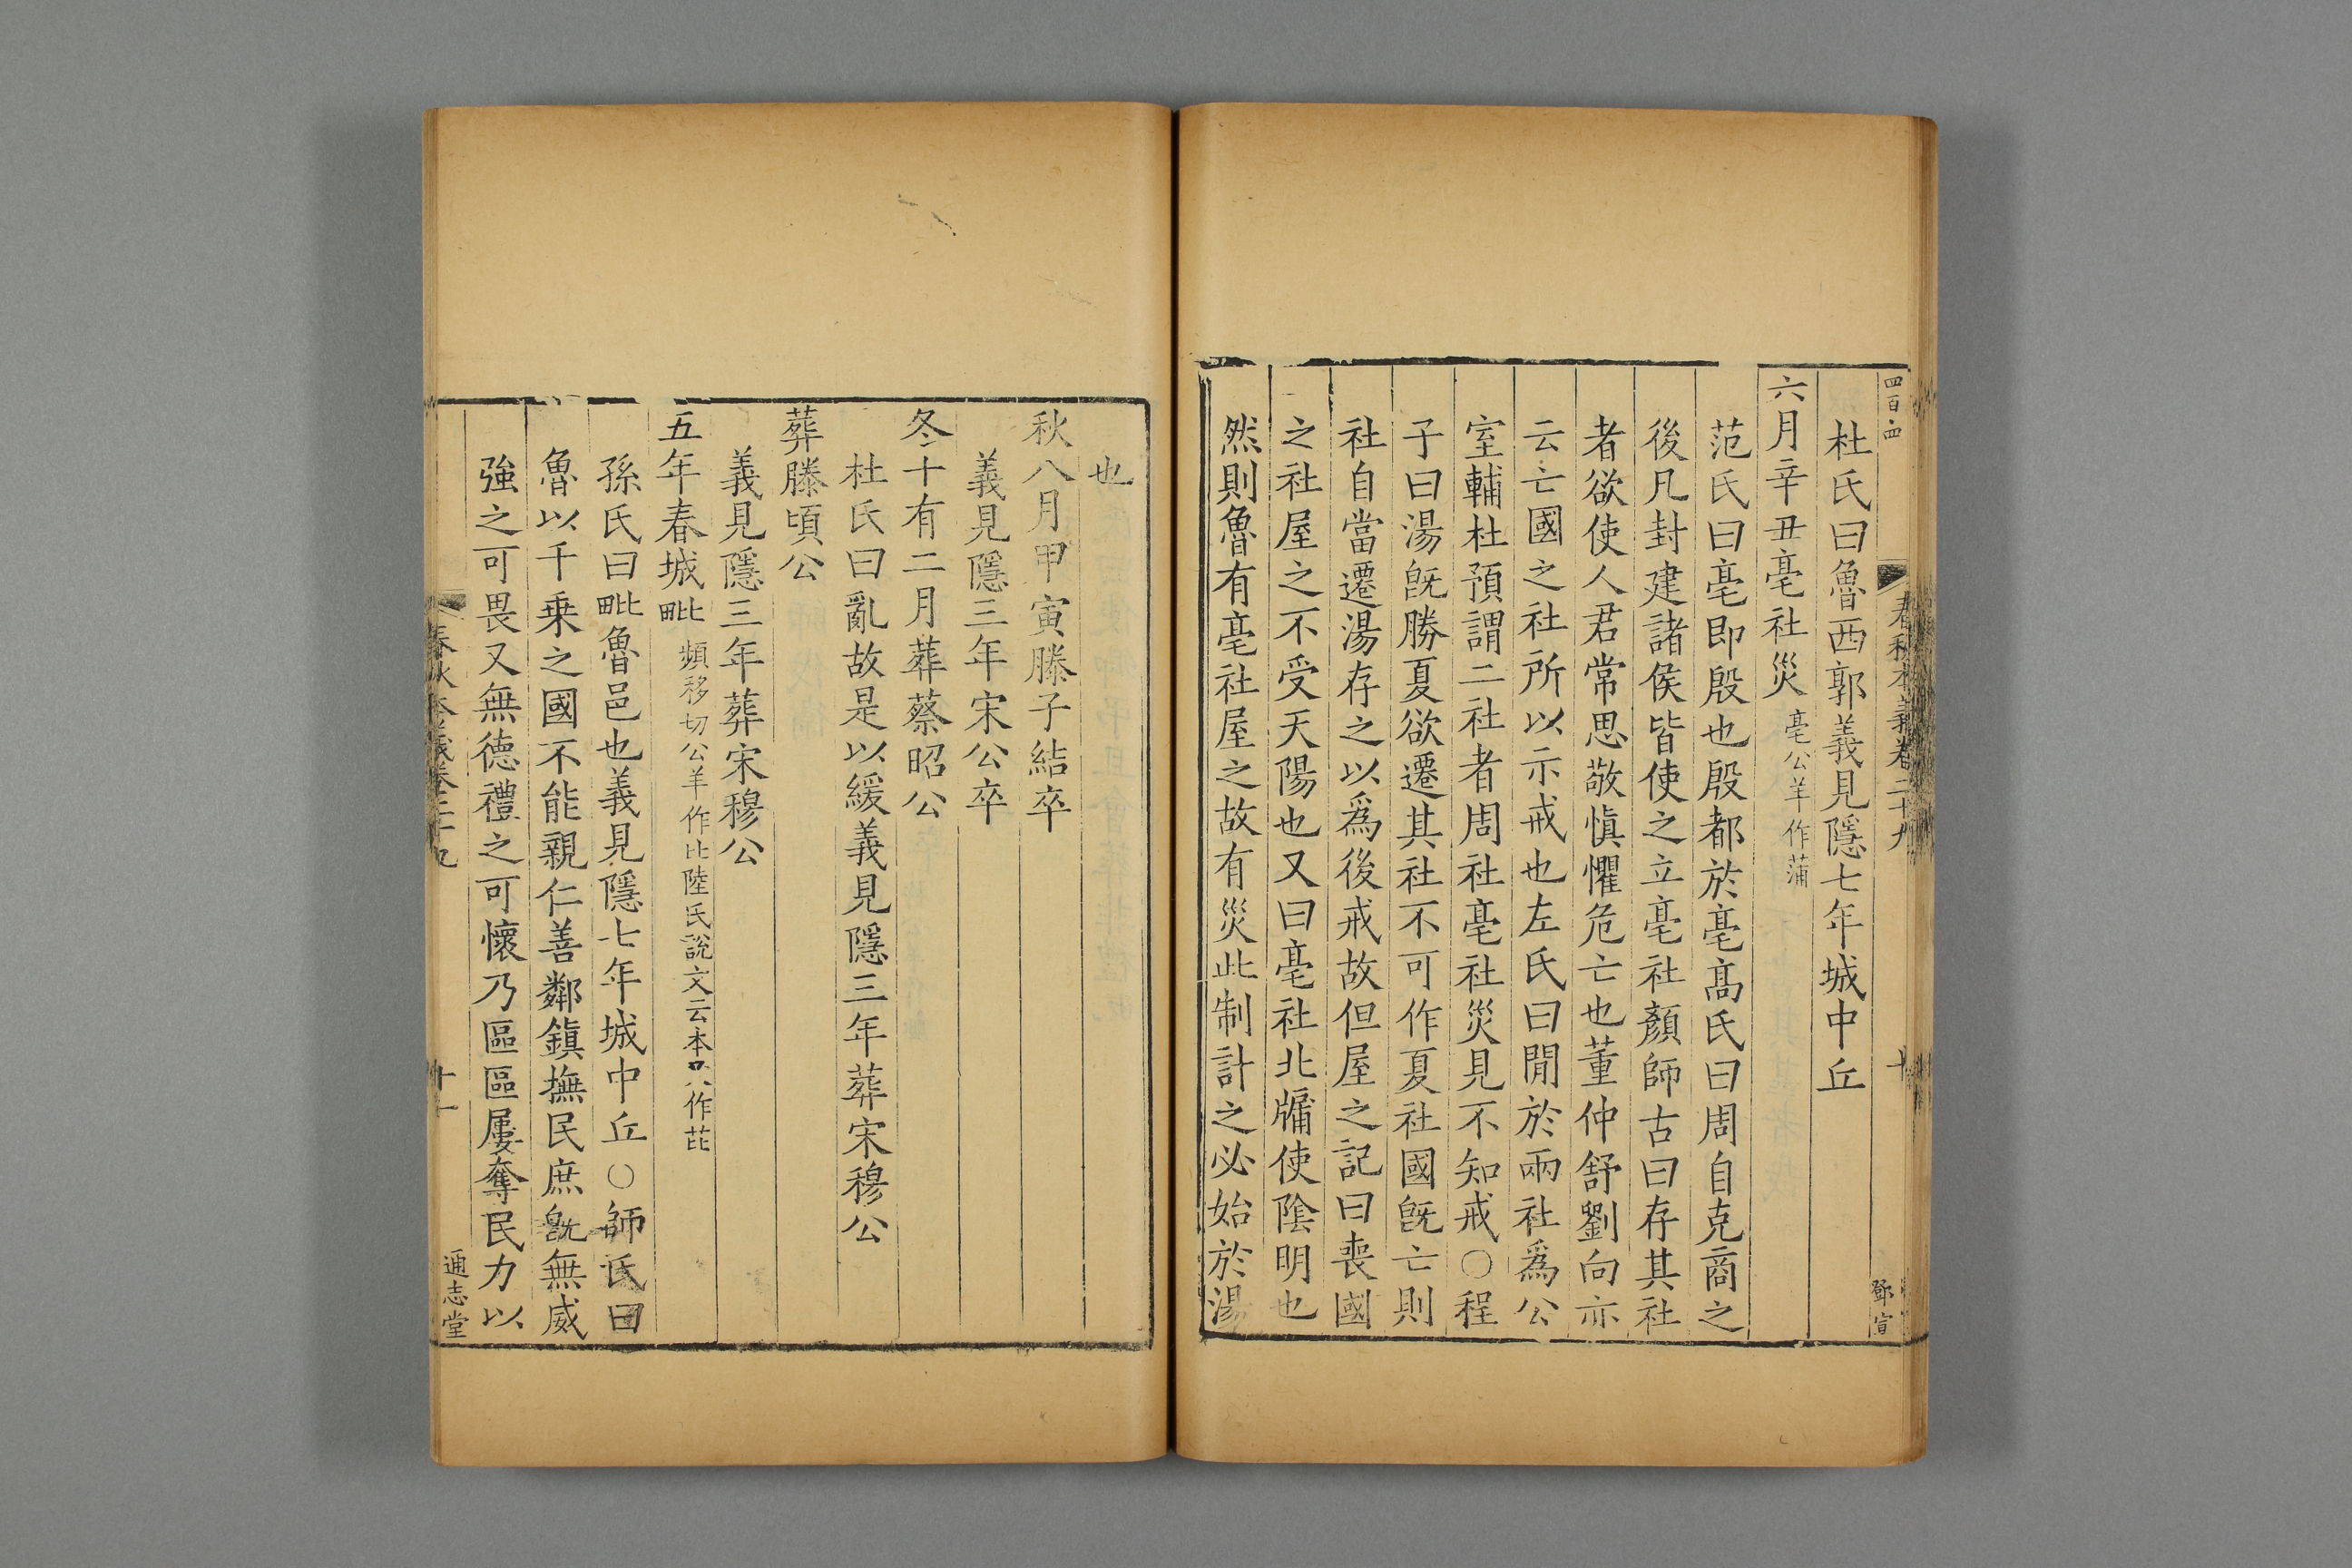 四百四 春秋本義卷二十九 十 鄧宣
杜氏曰魯西郭義見隱七年城中丘
六月辛丑亳社災亳公羊作蒲
范氏曰亳即殷也殷都於亳髙氏曰周自克商之
後凡封建諸侯皆使之立亳社顏師古曰存其社
者欲使人君常思敬愼懼危亡也董仲舒劉向亦
云亡國之社所以示戒也左氏曰閒於兩社爲公
室輔杜預謂二社者周社亳社災見不知戒○程
子曰湯旣勝夏欲遷其社不可作夏社國旣亡則
社自當遷湯存之以爲後戒故但屋之記曰喪國
之社屋之不受天陽也又曰亳社北牖使陰明也
然則魯有亳社屋之故有災此制計之必始於湯
也
秋八月甲寅滕子結卒
義見隱三年宋公卒
冬十有二月葬蔡昭公
杜氏曰亂故是以緩義見隱三年葬宋穆公
葬滕頃公
義見隱三年葬宋穆公
五年春城毗頻移切公羊作比陸氏說文云本又作芘
孫氏曰毗魯邑也義見隱七年城中丘○師氏曰
魯以千乗之國不能親仁善鄰鎭撫民庶旣無威
強之可畏又無德禮之可懷乃區區屢奪民力以
春秋本義卷二十九 十一 通志堂